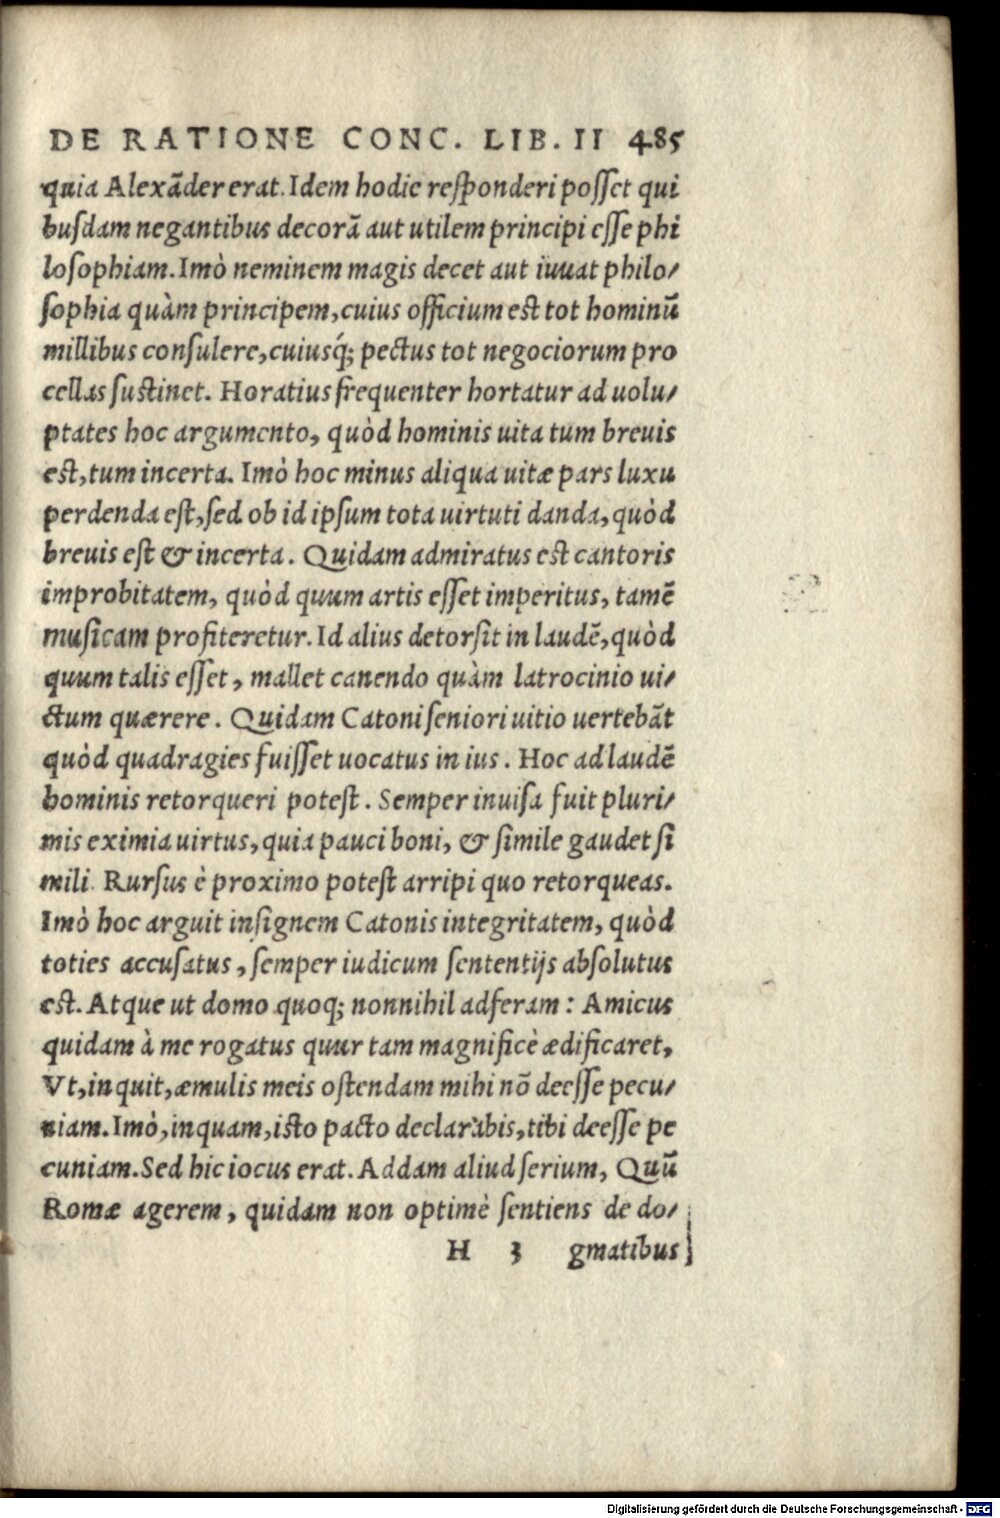 DE RATIONE CONC. LIB. II 485
quia Alexãder erat. Idem hodie responderi posset qui
busdam negantibus decorã aut utilem principi esse phi
losophiam. Imò neminem magis decet aut iuuat philo/
sophia quàm principem, cuius officium est tot hominũ
millibus consulere, cuiusq́; pectus tot negociorum pro
cellas sustinet. Horatius frequenter hortatur ad uolu/
ptates hoc argumento, quòd hominis uita tum breuis
est, tum incerta. Imò hoc minus aliqua uitæ pars luxu
perdenda est, sed ob id ipsum tota uirtuti danda, quòd
breuis est & incerta. Quidam admiratus est cantoris
improbitatem, quòd quum artis esset imperitus, tamẽ
musicam profiteretur. Id alius detorsit in laudẽ, quòd
quum talis esset, mallet canendo quàm latrocinio ui/
ctum quærere. Quidam Catoni seniori uitio uertebãt
quòd quadragies fuisset uocatus in ius. Hoc ad laudẽ
hominis retorqueri potest. Semper inuisa fuit pluri/
mis eximia uirtus, quia pauci boni, & simile gaudet si
mili. Rursus è proximo potest arripi quo retorqueas.
Imò hoc arguit insignem Catonis integritatem, quòd
toties accusatus, semper iudicum sententijs absolutus
est. Atque ut domo quoq; nonnihil adferam: Amicus
quidam à me rogatus quur tam magnificè ædificaret,
Vt, inquit, æmulis meis ostendam mihi nõ deesse pecu/
niam. Imò, inquam, isto pacto declarabis, tibi deesse pe
cuniam. Sed hic iocus erat. Addam aliud serium, Quũ
Romæ agerem, quidam non optimè sentiens de do/
H 3 gmatibus
Digitalisierung gefördert durch die Deutsche Forschungsgemeinschaft - DFG